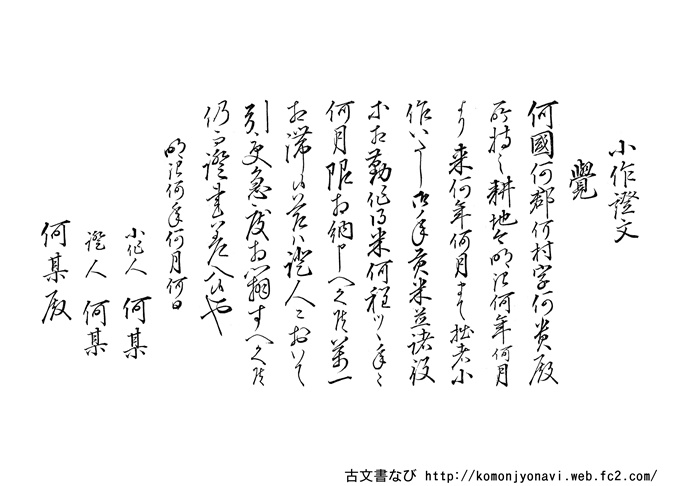 小作證文
覺
何國何郡何村字何貴殿
所持之耕地今明治何年何月
より来何年何月まて拙者小
作いたし御年貢米並諸役
等相勤作得米何程ツヽ年々
何月限相納申へく候萬一
相滞候節ハ證人ニおいて
引受急度相辨すへく候
仍而證書差入候也
明治何年何月何日
小作人 何某
證人 何某
何某殿
古文書なび http://komonjyonavi.web.fc2.com/